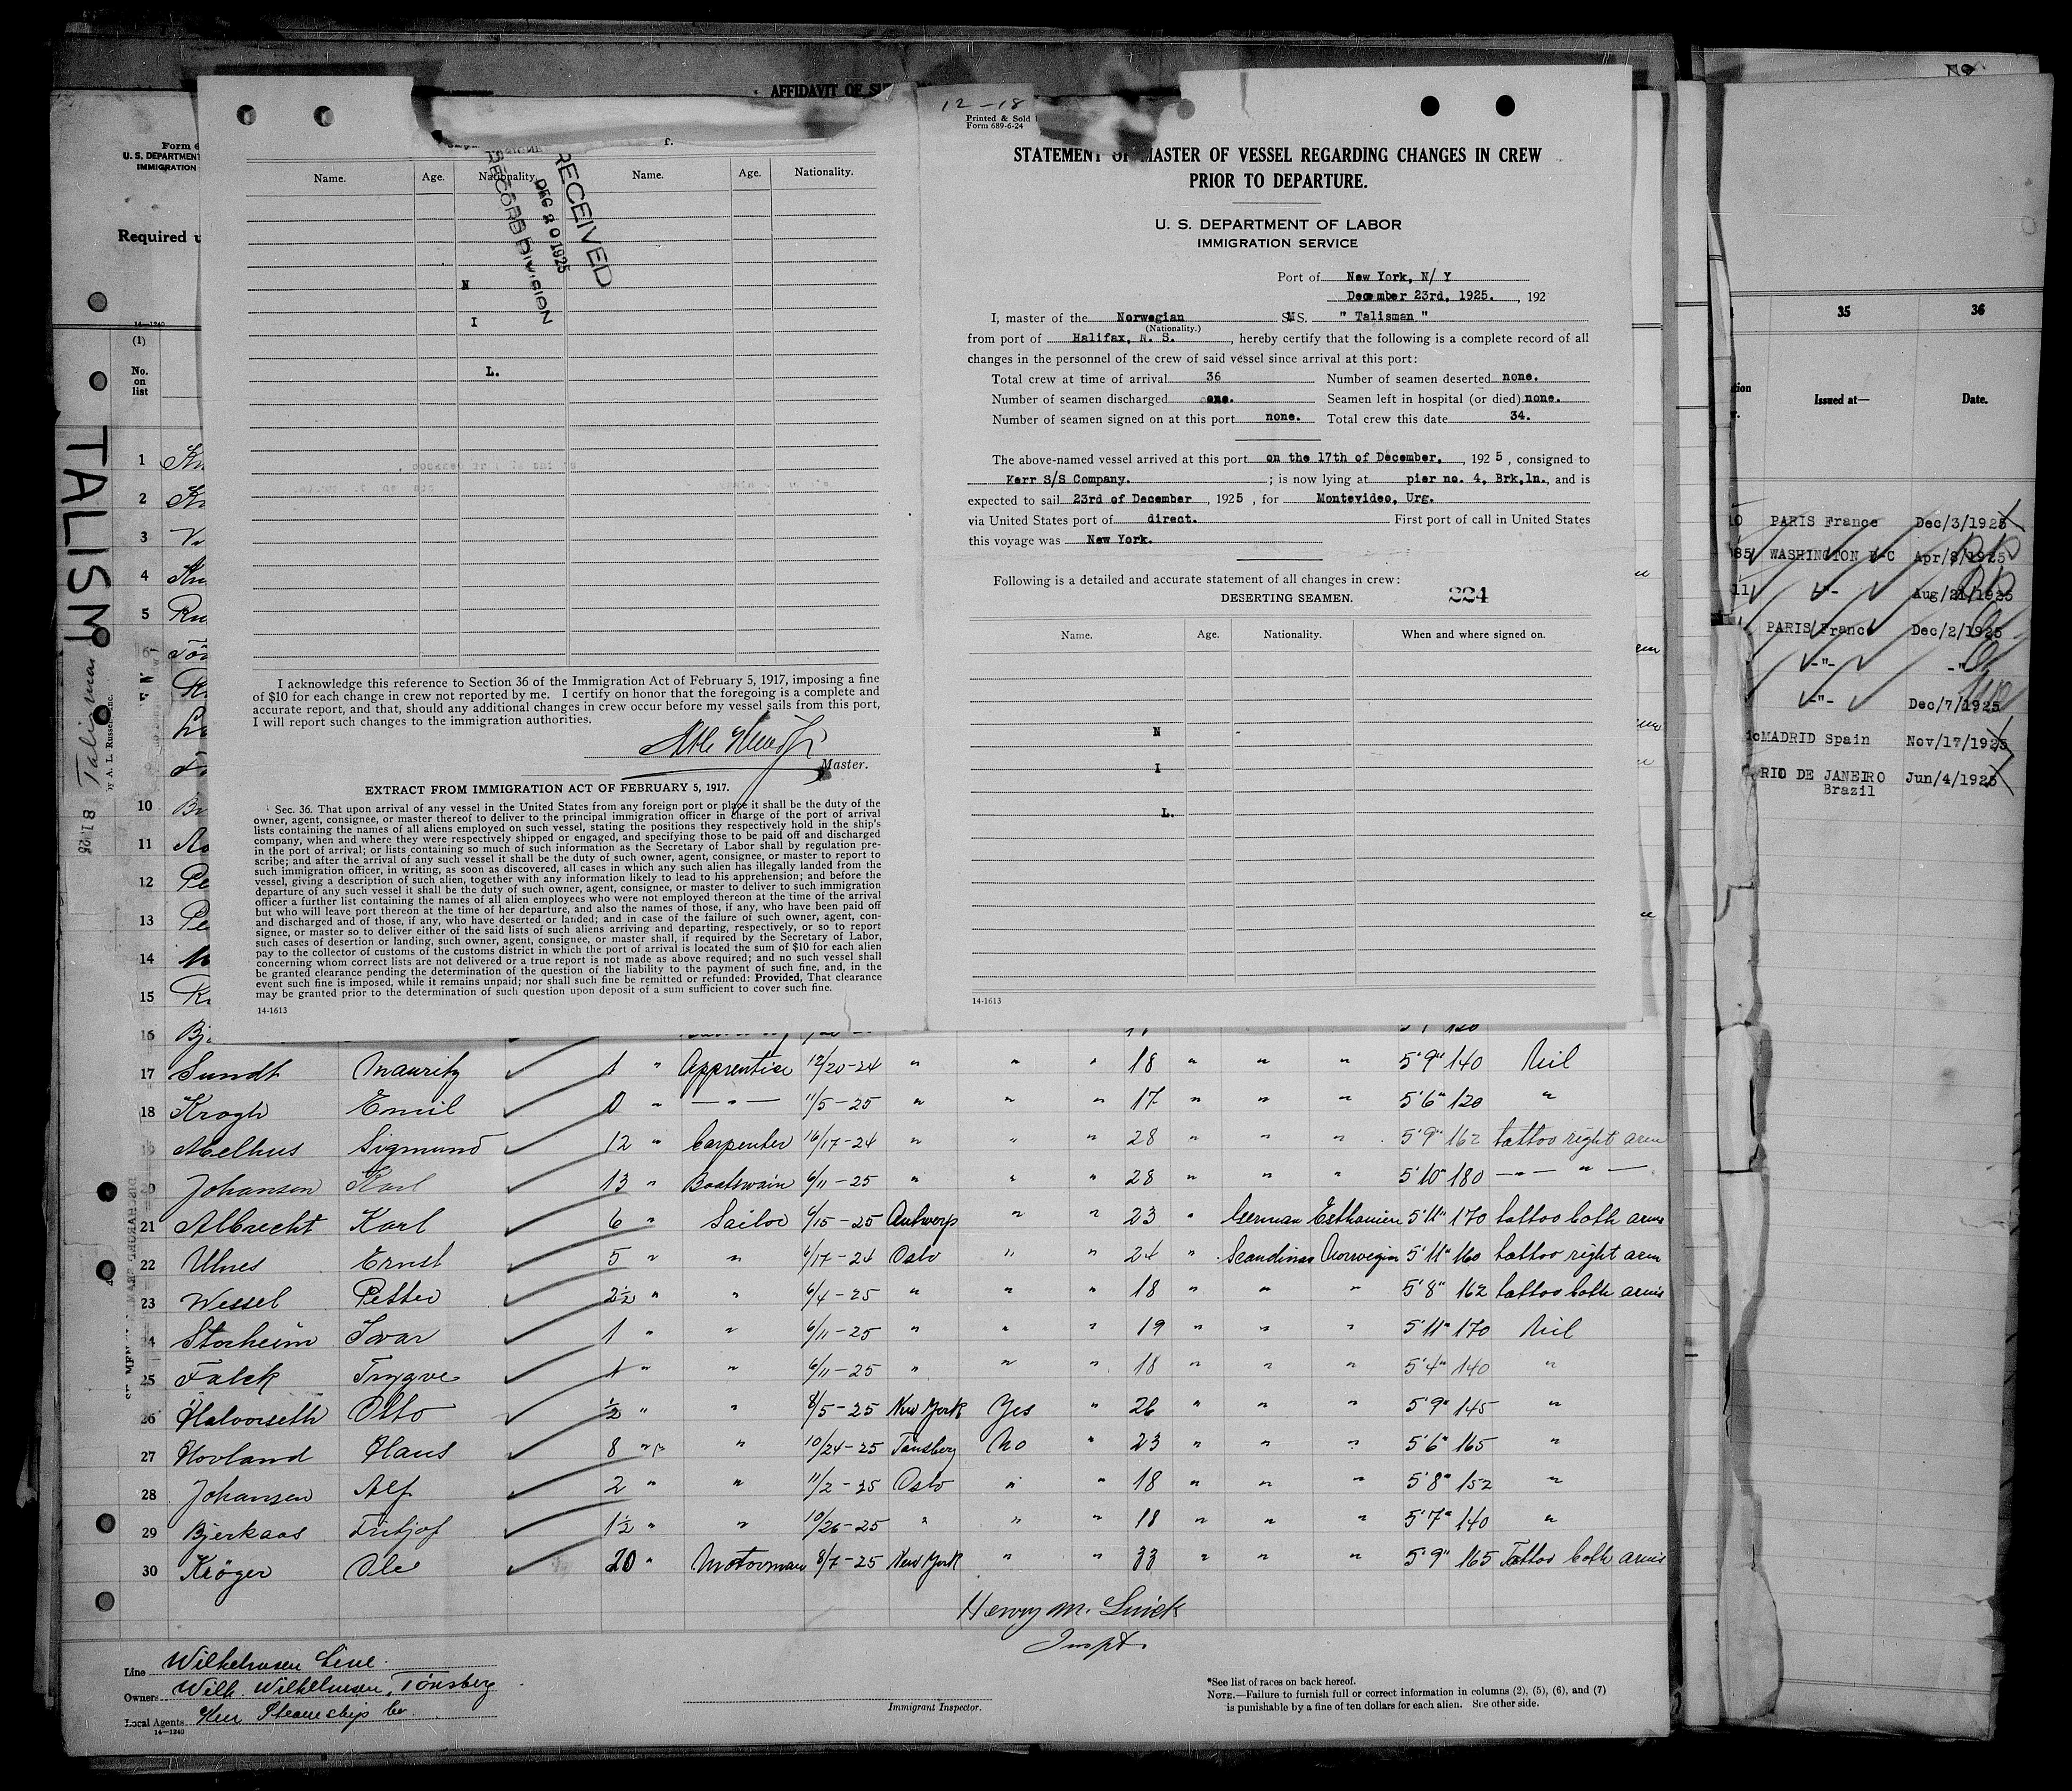 AFFIDAVIT OF SU
No
12-18
Printed & Sold
Form 689-6-24
Form 6
U. S. DEPARTMENT
IMMIGRATION
Required u
14-1240
(1)
No.
on
list
TALISM
Talisman
by A. L. Russell, Inc.
Name.
Age.
Nationality.
Name.
Age.
Nationality.
RECEIVED
DEC 2 0 1925
RECORD DIVISION
N
I
L.
I acknowledge this reference to Section 36 of the Immigration Act of February 5, 1917, imposing a fine
of $10 for each change in crew not reported by me. I certify on honor that the foregoing is a complete and
accurate report, and that, should any additional changes in crew occur before my vessel sails from this port,
I will report such changes to the immigration authorities.
Master.
EXTRACT FROM IMMIGRATION ACT OF FEBRUARY 5, 1917.
Sec. 36. That upon arrival of any vessel in the United States from any foreign port or place it shall be the duty of the
owner, agent, consignee, or master thereof to deliver to the principal immigration officer in charge of the port of arrival
lists containing the names of all aliens employed on such vessel, stating the positions they respectively hold in the ship's
company, when and where they were respectively shipped or engaged, and specifying those to be paid off and discharged
in the port of arrival; or lists containing so much of such information as the Secretary of Labor shall by regulation pre-
scribe; and after the arrival of any such vessel it shall be the duty of such owner, agent, consignee, or master to report to
such immigration officer, in writing, as soon as discovered, all cases in which any such alien has illegally landed from the
vessel, giving a description of such alien, together with any information likely to lead to his apprehension; and before the
departure of any such vessel it shall be the duty of such owner, agent, consignee, or master to deliver to such immigration
officer a further list containing the names of all alien employees who were not employed thereon at the time of the arrival
but who will leave port thereon at the time of her departure, and also the names of those, if any, who have been paid off
and discharged and of those, if any, who have deserted or landed; and in case of the failure of such owner, agent, con-
signee, or master so to deliver either of the said lists of such aliens arriving and departing, respectively, or so to report
such cases of desertion or landing, such owner, agent, consignee, or master shall, if required by the Secretary of Labor,
pay to the collector of customs of the customs district in which the port of arrival is located the sum of $10 for each alien
concerning whom correct lists are not delivered or a true report is not made as above required; and no such vessel shall
be granted clearance pending the determination of the question of the liability to the payment of such fine, and, in the
event such fine is imposed, while it remains unpaid; nor shall such fine be remitted or refunded: Provided, That clearance
may be granted prior to the determination of such question upon deposit of a sum sufficient to cover such fine.
14-1613
STATEMENT OF MASTER OF VESSEL REGARDING CHANGES IN CREW
PRIOR TO DEPARTURE.
U. S. DEPARTMENT OF LABOR
IMMIGRATION SERVICE
Port of New York, N/ Y
December 23rd, 1925. , 192
I, master of the Norwegian S.S. " Talisman "
(Nationality.)
from port of Halifax, N. S. , hereby certify that the following is a complete record of all
changes in the personnel of the crew of said vessel since arrival at this port:
Total crew at time of arrival 36 Number of seamen deserted none.
Number of seamen discharged one. Seamen left in hospital (or died) none.
Number of seamen signed on at this port none. Total crew this date 34.
The above-named vessel arrived at this port on the 17th of December, , 192 5 , consigned to
Kerr S/S Company. ; is now lying at pier no. 4, Brk,ln., and is
expected to sail 23rd of December , 1925 , for Montevideo, Urg.
via United States port of direct. First port of call in United States
this voyage was New York.
Following is a detailed and accurate statement of all changes in crew:
DESERTING SEAMEN. 224
Name. Age. Nationality. When and where signed on.
N
I
L.
14-1613
35 36
Issued at— Date.
10 PARIS France Dec/3/1925
85 WASHINGTON D-C Apr/8/1925
11 -"- Aug/21/1925
PARIS France Dec/2/1925
-"- -"-
-"- Dec/7/1925
MADRID Spain Nov/17/1925
RIO DE JANEIRO Jun/4/1925
Brazil
1
2
3
4
5
10
11
12
13
14
15
16
17 Sundt Mauritz 1 " Apprentice 12/20-24 " " " 18 " " " 5'9" 140 Nil
18 Krogh Emil 0 " — " — 11/5-25 " " " 17 " " " 5'6" 120 "
19 Melhus Sigmund 12 " Carpenter 16/17-24 " " " 28 " " " 5'9" 162 tattoo right arm
20 Johansen Karl 13 " Boatswain 6/11-25 " " " 28 " " " 5'10" 180 — " — " —
21 Albrecht Karl 6 " Sailor 6/15-25 Antwerp " " 23 " German Esthonien 5'11" 170 tattoo both arms
22 Ulnes Ernst 5 " " 6/17-24 Oslo " " 24 " Scandinav Norwegin 5'11" 160 tattoo right arm
23 Wessel Petter 2½ " " 6/4-25 " " " 18 " " " 5'8" 162 tattoo both arms
24 Storheim Ivar 1 " " 6/11-25 " " " 19 " " " 5'11" 170 Nil
25 Falck Trygve 1 " " 6/11-25 " " " 18 " " " 5'4" 140 "
26 Halvorseth Otto ½ " " 8/5-25 New York Yes " 26 " " " 5'9" 145 "
27 Hovland Hans 8 " " 10/24-25 Tønsberg No " 23 " " " 5'6" 165 "
28 Johansen Alf 2 " " 11/2-25 Oslo " " 18 " " " 5'8" 152 "
29 Bjerkaas Fritjof 1½ " " 10/26-25 " " " 18 " " " 5'7" 140 "
30 Krøger Ole 20 " Motorman 8/7-25 New York " " 33 " " " 5'9" 165 Tattoo both arms
Henry M.
Inspt.
Immigrant Inspector.
Line Wilhelmsen Line.
Owners Wilh. Wilhelmsen, Tönsberg
Local Agents Kerr Steamship Co.
14-1240
*See list of races on back hereof.
NOTE.—Failure to furnish full or correct information in columns (2), (5), (6), and (7)
is punishable by a fine of ten dollars for each alien. See other side.